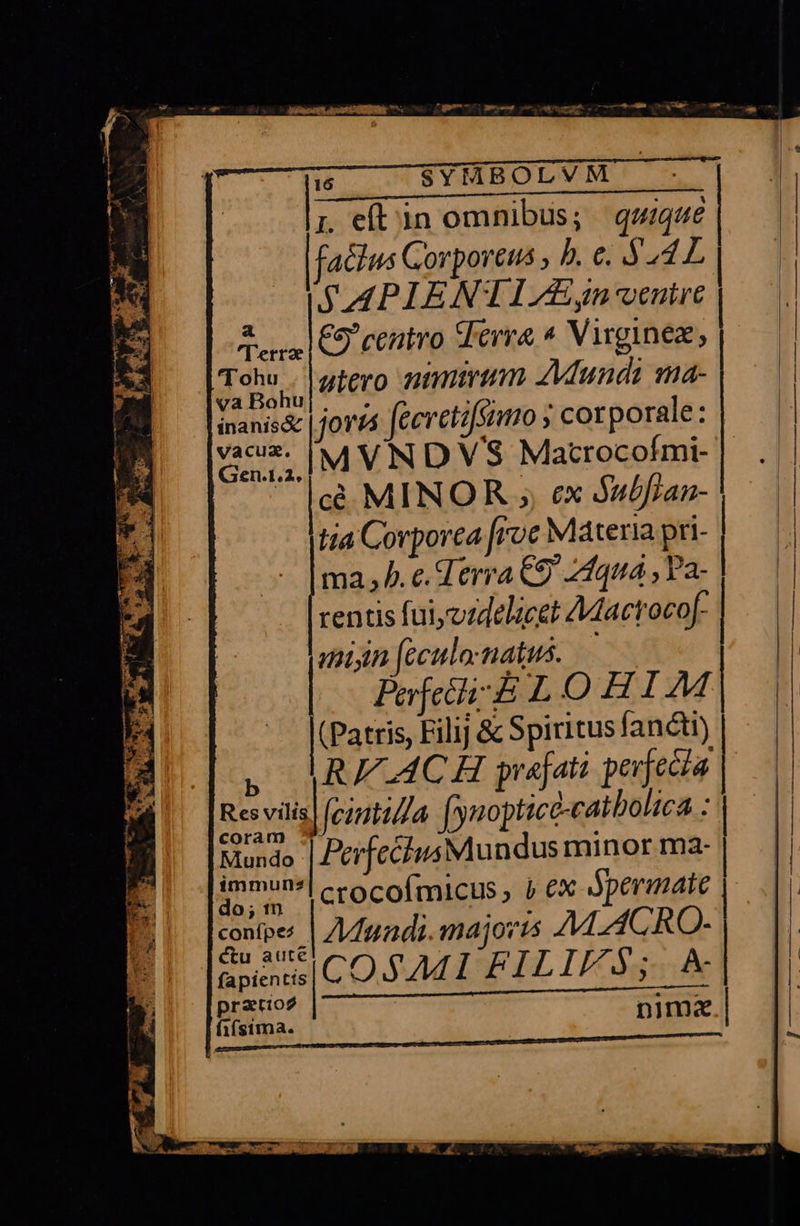 16 SYMBOLVM
1. eſt in omnibus; quique
factus Corporeus, h. e. SAL
SAPIENTIÆ, in ventre
& centro Terræ a Virgineæ,
utero nimirum Mundi ma-
joris ſecretiſſimo; corporale:
MVNDVS Macrocoſmi-
cè MINOR; ex Subſtan-
tia Corporea ſive Materia pri-
ma, h. e. Terra & Aqua, Pa-
rentis ſui, videlicet Macrocoſ-
mi, in ſeculo natus.
Perfecti ELOHIM
(Patris, Filij & Spiritus ſancti)
RVACH præfati perfecta
ſcintilla ſynopticè-catholica:
Perfectus Mundus minor ma-
crocoſmicus, b ex Spermate
Mundi majoris MACRO-
COSMI FILIVS; A-
nimæ
a
Terra
Tohu
va Bohu
inanis &
vacua.
Gen. 1. 2.
b
Res vilis
coram
Mundo
immun⁹
do; in
conſpe⸗
ctu autē
ſapientis
prætioſ
ſiſsima.